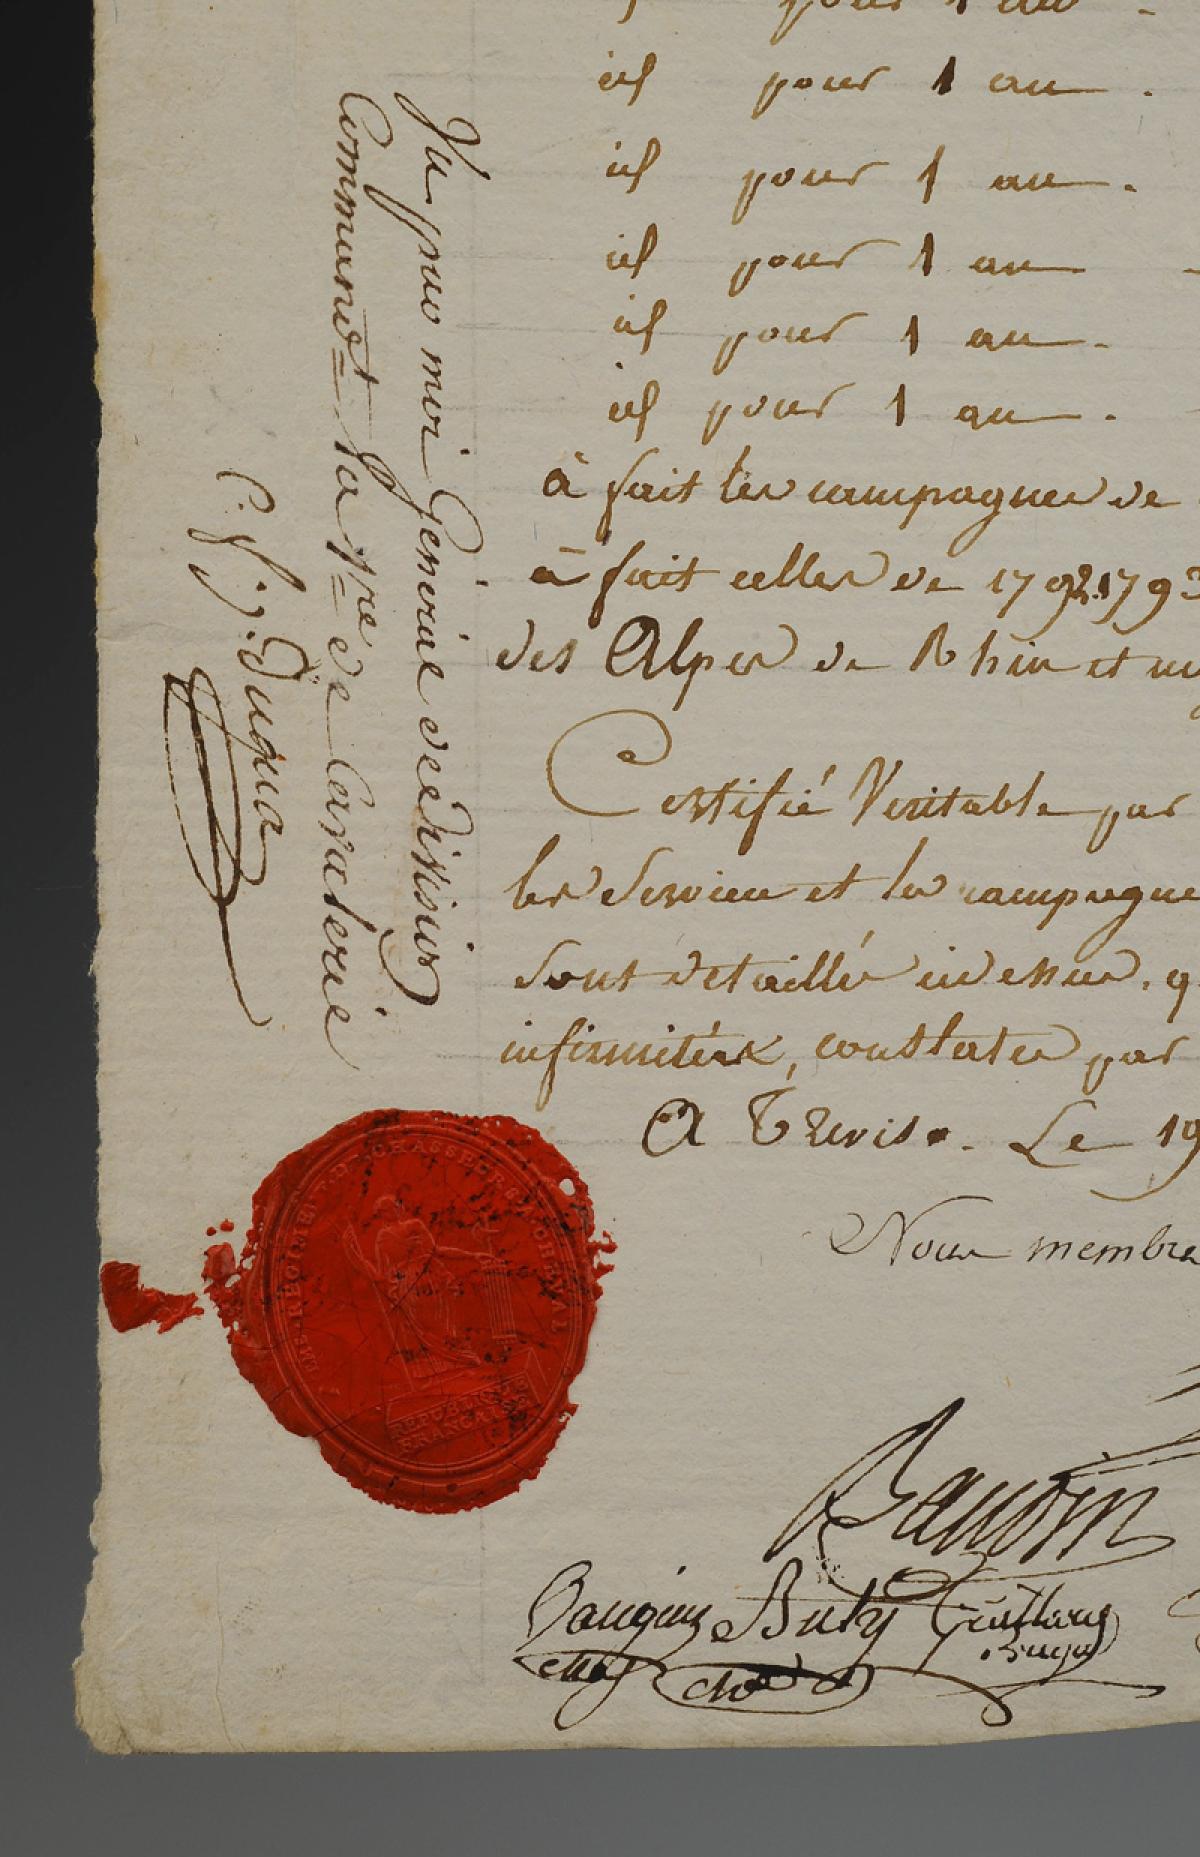 pour 1 an .
id pour 1 an .
id pour 1 an .
id pour 1 an
id pour 1 an .
id pour 1 an .
à fait les campagnes de
à fait celles de 1792.1793
des Alpes de Rhin et
Certifié Veritable par
les Services et les campagne
sont detaillés cidessus. q
infirmitées, constatées par
A Trevise. Le 19
Nous membre
Vu par moi Général de division
Command=t la 1=re de Cavalerie
C. f. j. Dugua
EME REGIMENT DE CHASSEURS A CHEVAL
REPUBLIQUE
FRANCAISE
Baudoin
Buty